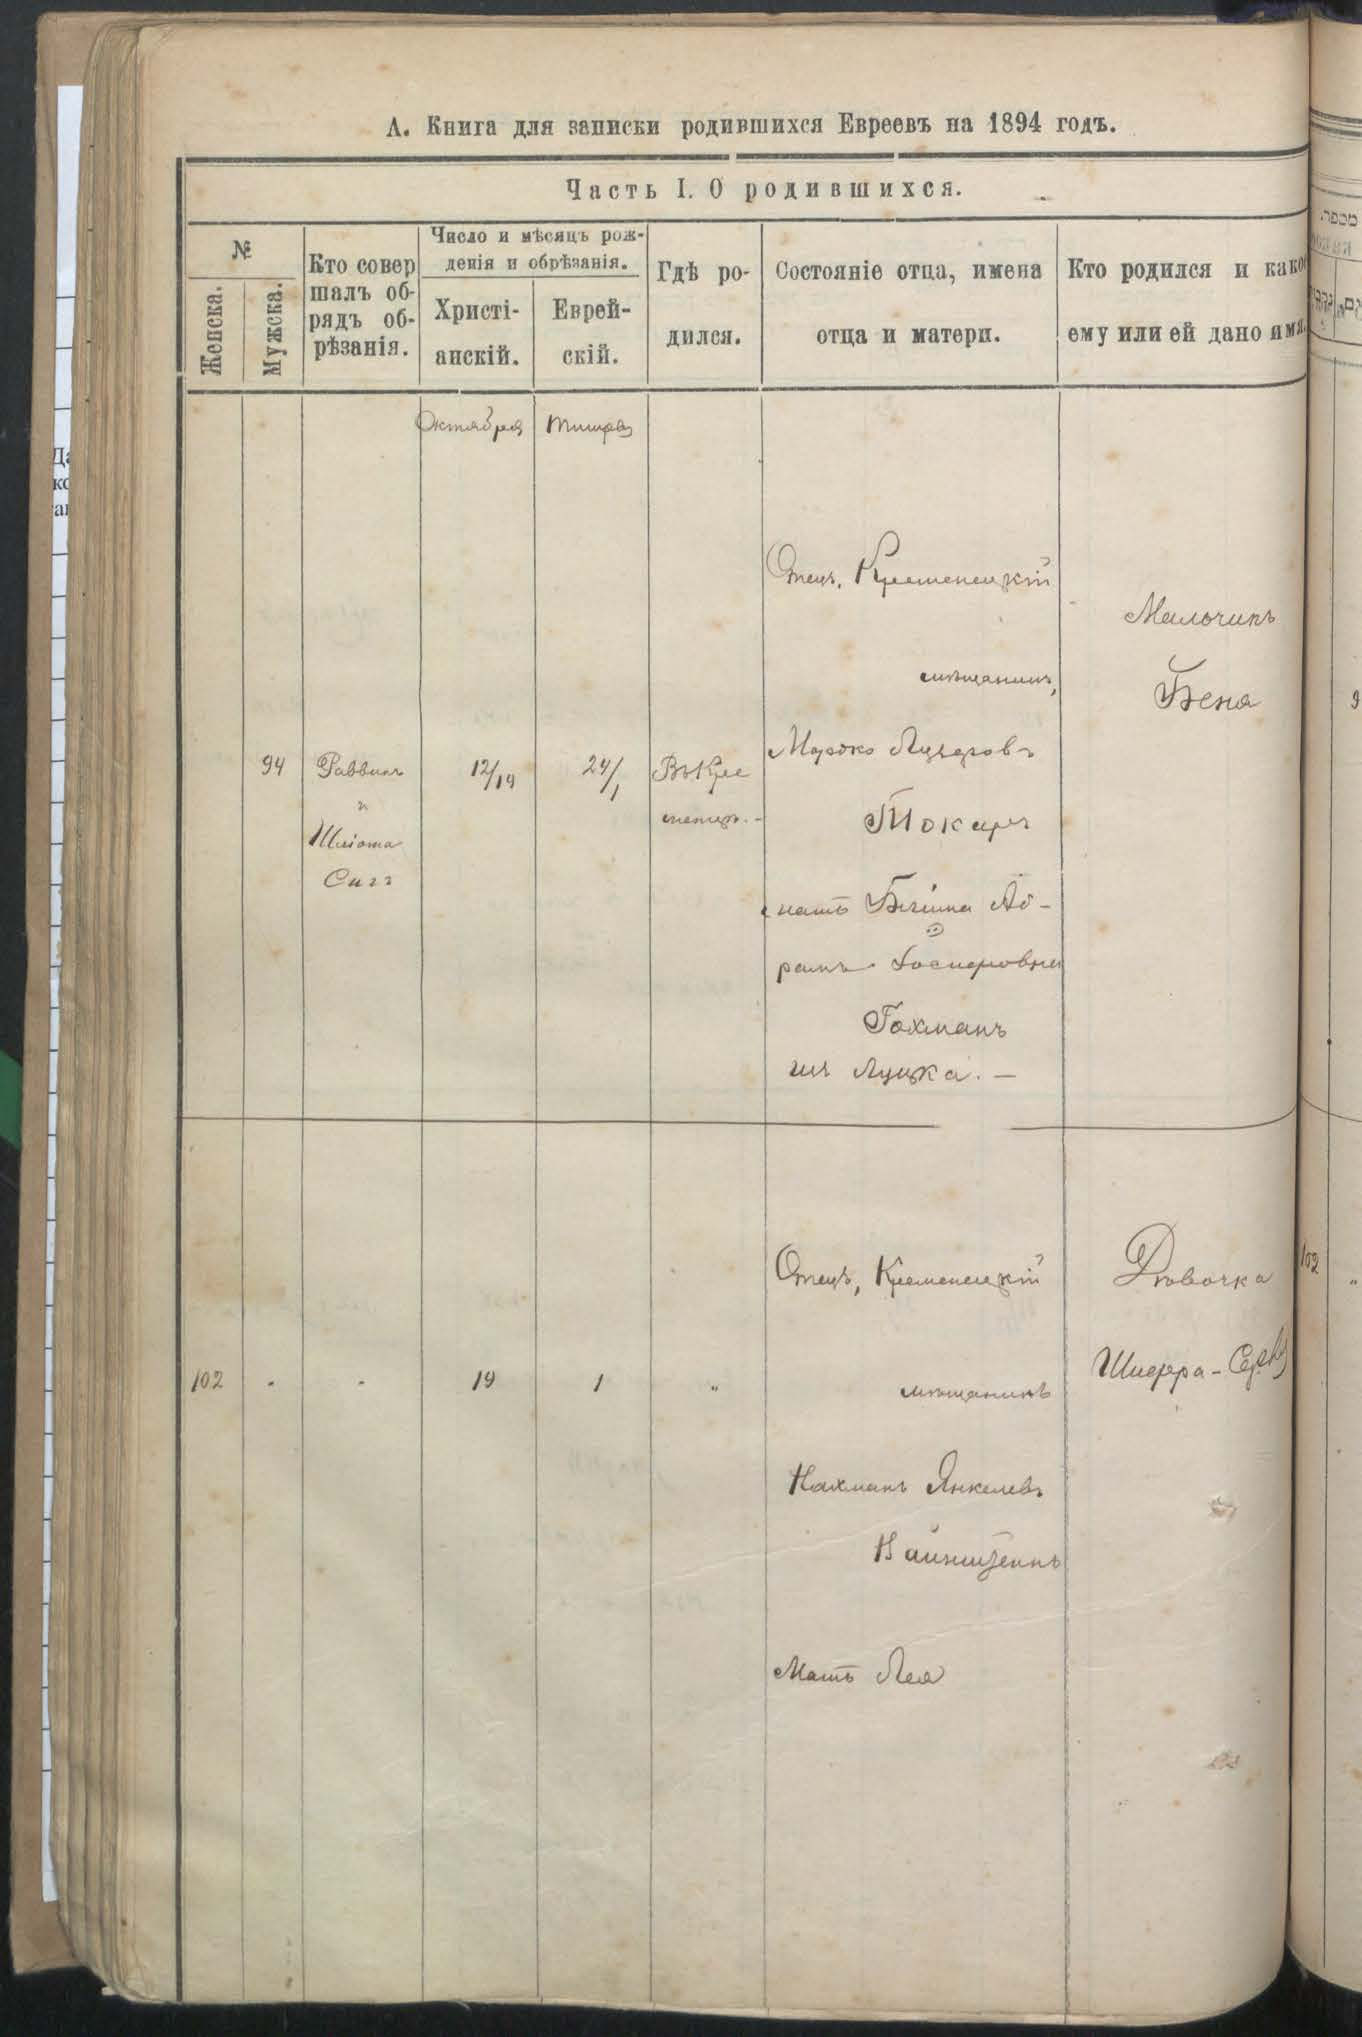 А. Книга для записки родившихся Евреевъ на 1894 годъ.
Часть I. О родившихся.
№
Женска.
Мужска.
Кто совер
шалъ об-
рядъ об-
рѣзанія.
Число и мѣсяцъ рож-
денія и обрѣзанія.
Христі-
анскій.
Еврей-
скій.
Гдѣ ро-
дился.
Состояніе отца, имена
отца и матери.
Кто родился и како
ему или ей дано имя.
Октября
Тишры
94
Раввинъ
и
Шліома
Сигъ
12/19
24/1
Въ Кре
менецѣ. -
Отецъ, Кременецкій
мѣщанинъ,
Мордко Лузеровъ
Токарь
мать Бейла Аб-
рамъ Іосиповна
Гохманъ
изъ Луцка. —
Мальчикъ
Беня
102
-
-
19
1
"
Отецъ, Кременецкій
мѣщанинъ
Нахманъ Янкелевъ
Мать Лея
Дѣвочка
Шифра-
102
"
9
מספר.